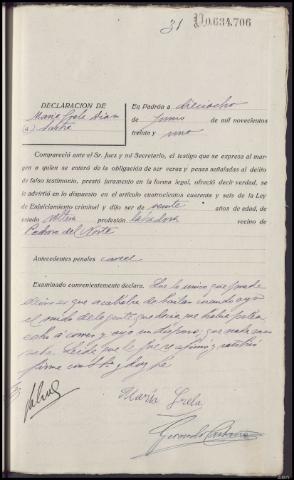 31 P0.634.706
DECLARACIÓN DE
María Grela Dian
(a) Sastre
En Padrón a dieciocho
de Junio de mil novecientos
treinta y uno
Compareció ante el Sr. Juez y mi Secretario, el testigo que se expresa al mar-
gen a quien se enteró de la obligación de ser veraz y penas señaladas al delito
de falso testimonio, prestó juramento en la forma legal, ofreció decir verdad, se
le advirtió en lo dispuesto en el artículo cuatrocientos cuarenta y seis de la Ley
de Enjuiciamiento criminal y dijo ser de veinte años de edad, de
estado soltera profesión labradora vecino de
del Norte
Antecedentes penales carece
Examinado convenientemente declara: Que lo único que puede
decir es que acababa de bailar cuando oyó
el ruido de la gente que decía
y oyó un disparo, que nada mas
sabe. Leída que le fue se afirmó y ratificó
firma con S.Sª. y doy fe
María Grela